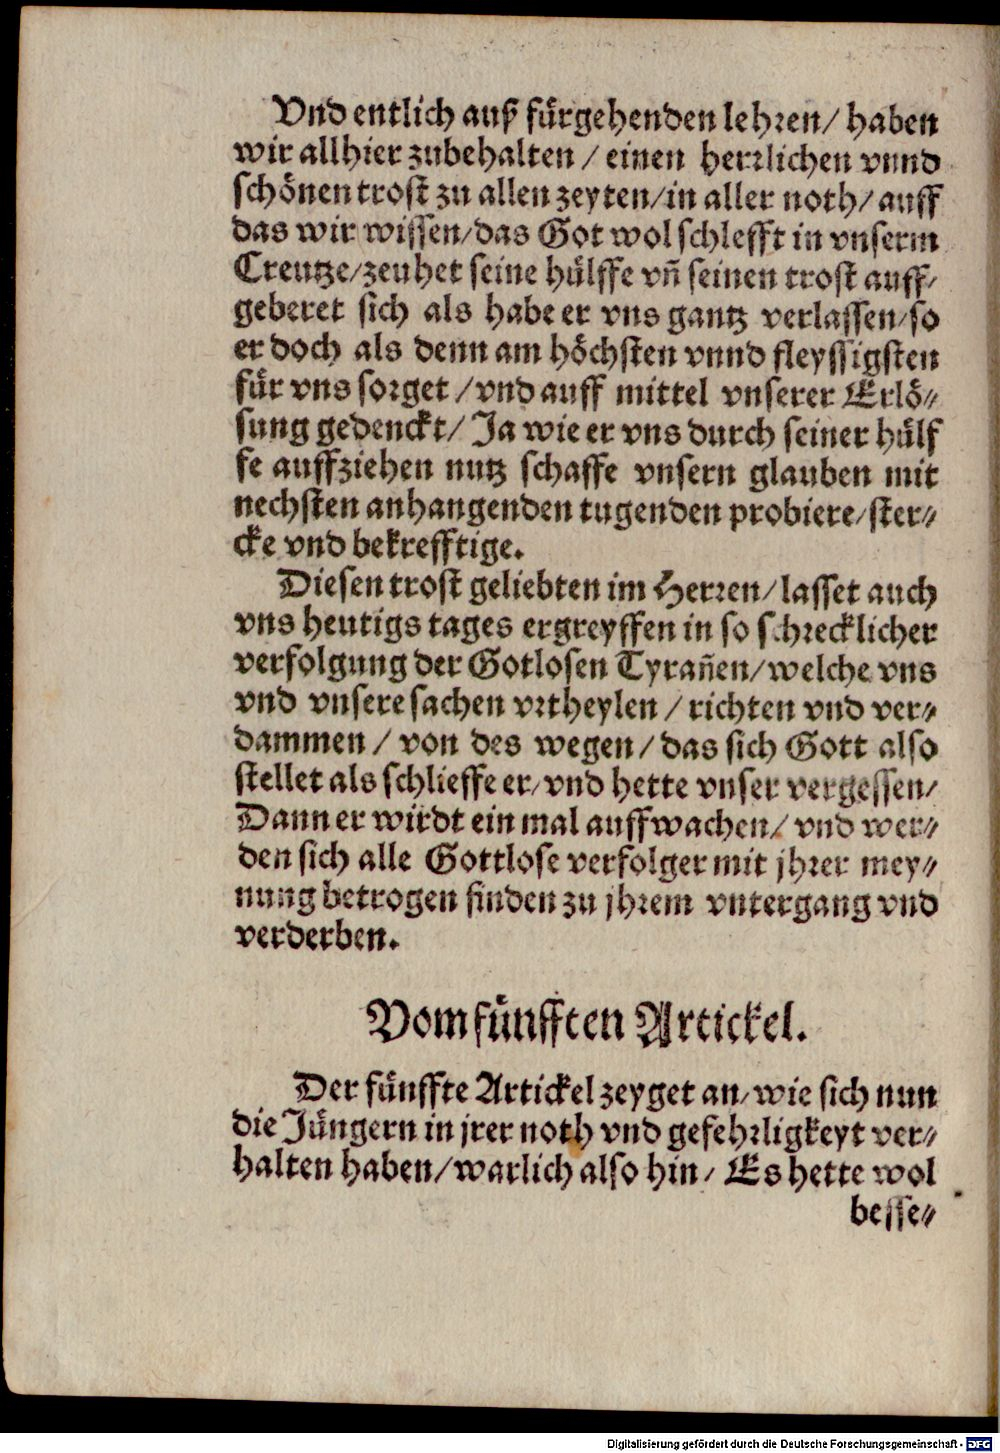 Vnd entlich auß fürgehenden lehren/ haben
wir allhier zubehalten / einen herrlichen vnnd
schönen trost zu allen zeyten/in aller noth/ auff
das wir wissen/das Got wol schlefft in vnserm
Creutze/zeuhet seine hülffe vñ seinen trost auff/
geberet sich als habe er vns gantz verlassen/so
er doch als denn am höchsten vnnd fleyssigsten
für vns sorget /vnd auff mittel vnserer Erlö⸗
sung gedenckt/ Ja wie er vns durch seiner hülf
fe auffziehen nutz schaffe vnsern glauben mit
nechsten anhangenden tugenden probiere/ster⸗
cke vnd bekrefftige.
Diesen trost geliebten im Herren/lasset auch
vns heutigs tages ergreyffen in so schrecklicher
verfolgung der Gotlosen Tyrañen/welche vns
vnd vnsere sachen vrtheylen / richten vnd ver⸗
dammen / von des wegen/das sich Gott also
stellet als schlieffe er/vnd hette vnser vergessen/
Dann er wirdt ein mal auffwachen/ vnd wer⸗
den sich alle Gottlose verfolger mit jhrer mey⸗
nung betrogen finden zu jhrem vntergang vnd
verderben.
Vom fünfften Artickel.
Der fünffte Artickel zeyget an/wie sich nun
die Jüngern in jrer noth vnd gefehrligkeyt ver⸗
halten haben/warlich also hin/ Es hette wol
besse⸗
Digitalisierung gefördert durch die Deutsche Forschungsgemeinschaft - DFG